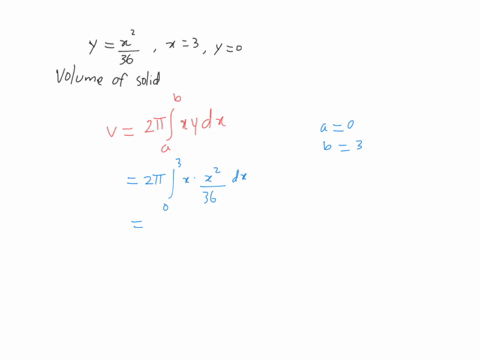 y = x²/36 , x = 3 , y = 0
Volume of solid
V = 2π ∫_a^b x y dx
a = 0
b = 3
= 2π ∫_0^3 x · x²/36 dx
=